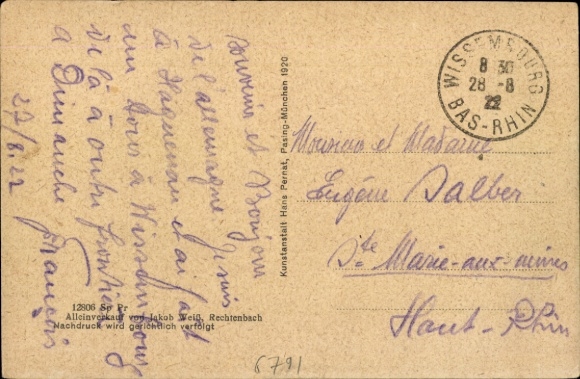 souvenir et Bonjour
de l'allemagne. Je suis
à Haguenau et ai fait
un tour à Wissembourg
de là à outre frontière
a Dimanche François
27/8.22
Kunstanstalt Hans Pernat, Pasing-München 1920
WISSEMBOURG
8 30
28 -8
22
BAS-RHIN
Monsieur et Madame
Eugène Dalber
Ste Marie-aux-mines
Haut-Rhin
12806 Sp Pr
Alleinverkauf von Jakob Weiß, Rechtenbach
Nachdruck wird gerichtlich verfolgt
6791